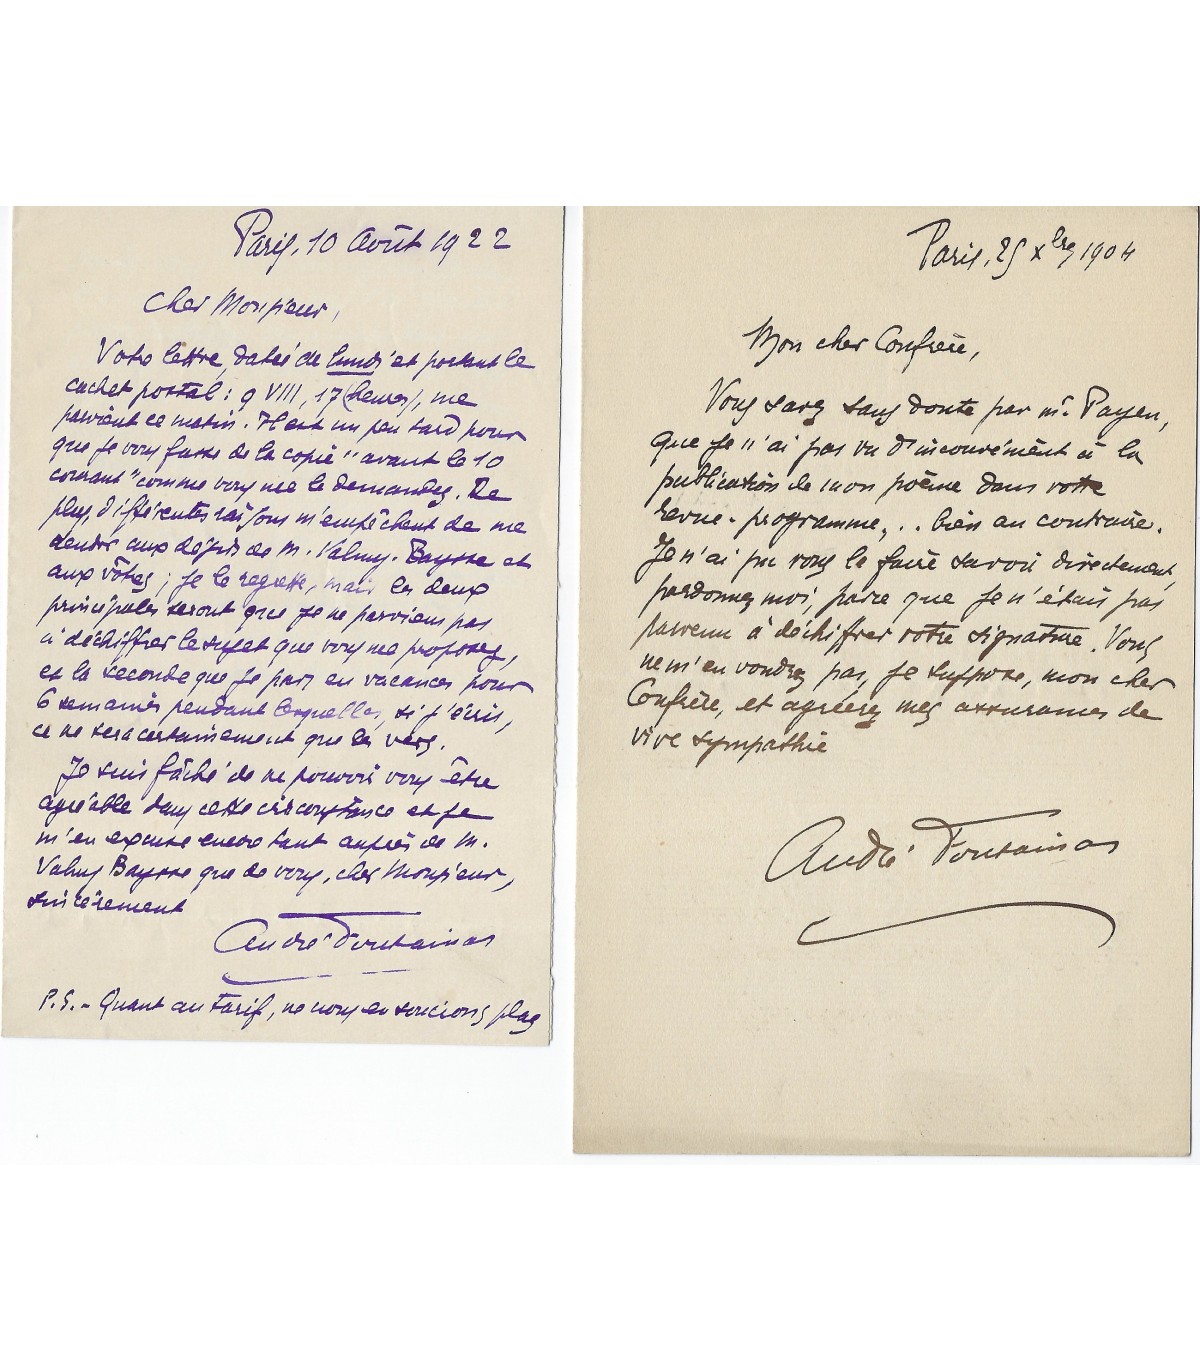 Paris, 10 Août 1922
Cher Monsieur,
Votre lettre, datée de lundi et portant le
cachet postal : 9 VIII, 17 (heures), me
parvient ce matin. Il est un peu tard pour
que je vous fasse de la copie "avant le 10
courant" comme vous me le demandez. De
plus, différentes raisons m'empêchent de me
rendre aux désirs de M. Valmy-Baysse et
aux vôtres ; je le regrette, mais les deux
principales seront que je ne parviens pas
à déchiffrer le sujet que vous me proposez,
et la seconde que je pars en vacances pour
6 semaines pendant lesquelles, si j'écris,
ce ne sera certainement que des vers.
Je suis fâché de ne pouvoir vous être
agréable dans cette circonstance et je
m'en excuse encore tant auprès de M.
Valmy Baysse que de vous, cher Monsieur,
sincèrement
André Fontainas
P.S. - Quant au tarif, ne nous en soucions plus
Paris, 25 Xbre 1904
Mon cher Confrère,
Vous savez sans doute par Mr. Payen,
que je n'ai pas vu d'inconvénient à la
publication de mon poème dans votre
revue-programme, .. bien au contraire.
Je n'ai pu vous le faire savoir directement,
pardonnez moi, parce que je n'étais pas
parvenu à déchiffrer votre signature. Vous
ne m'en voudrez pas, je suppose, mon cher
Confrère, et agréerez mes assurances de
vive sympathie
André Fontainas